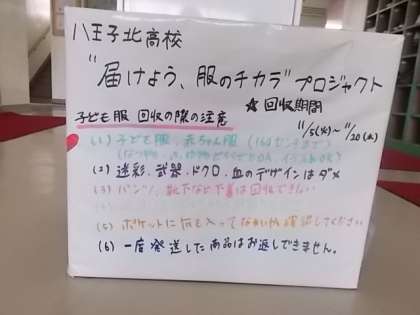 八王子北高校
"届けよう、服のチカラ"プロジェクト
★回収期間
11/5(火)〜11/20(水)
子ども服 回収の際の注意
(1) 子ども服・赤ちゃん服 (160センチまで)
(2) 迷彩、武器、ドクロ、血のデザインはダメ
(3) パンツ、靴下など下着は回収できない
(5) ポケットに何も入ってないか確認してください
(6) 一度発送した商品はお返しできません。